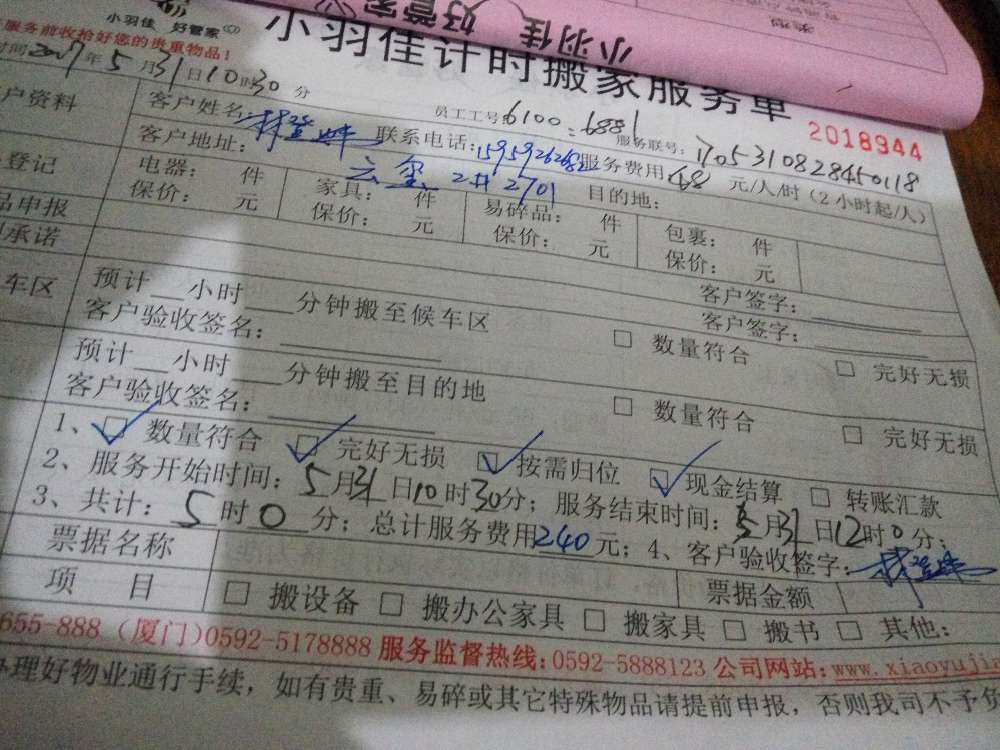 小羽佳 好管家
小羽佳 好管家
小羽佳计时搬家服务单
服务前收拾好您的贵重物品！
2018944
时间2017年5月31日10时30分
员工工号：6100：6881
服务联号：1705310828450118
户资料
客户姓名：
联系电话：
服务费用：48 元/人/时（2小时起/人）
客户地址：云玺 2# 2701
目的地：
登记
电器： 件
家具： 件
易碎品： 件
包裹： 件
品申报
保价： 元
保价： 元
保价： 元
保价： 元
承诺
客户签字：
客户签字：
车区
预计__小时____分钟搬至候车区
□ 数量符合
□ 完好无损
客户验收签名：
预计__小时____分钟搬至目的地
□ 数量符合
□ 完好无损
客户验收签名：
1、☑ 数量符合 ☑ 完好无损 ☑ 按需归位 ☑ 现金结算 □ 转账汇款
2、服务开始时间：5月31日10时30分；服务结束时间：5月31日12时0分；
3、共计：5时0分；总计服务费用240元；4、客户验收签字：
票据名称
票据金额
项 目
□ 搬设备 □ 搬办公家具 □ 搬家具 □ 搬书 □ 其他：
655-888 (厦门)0592-5178888 服务监督热线:0592-5888123 公司网站:www.xiaoyuji
办理好物业通行手续，如有贵重、易碎或其它特殊物品请提前申报，否则我司不予负